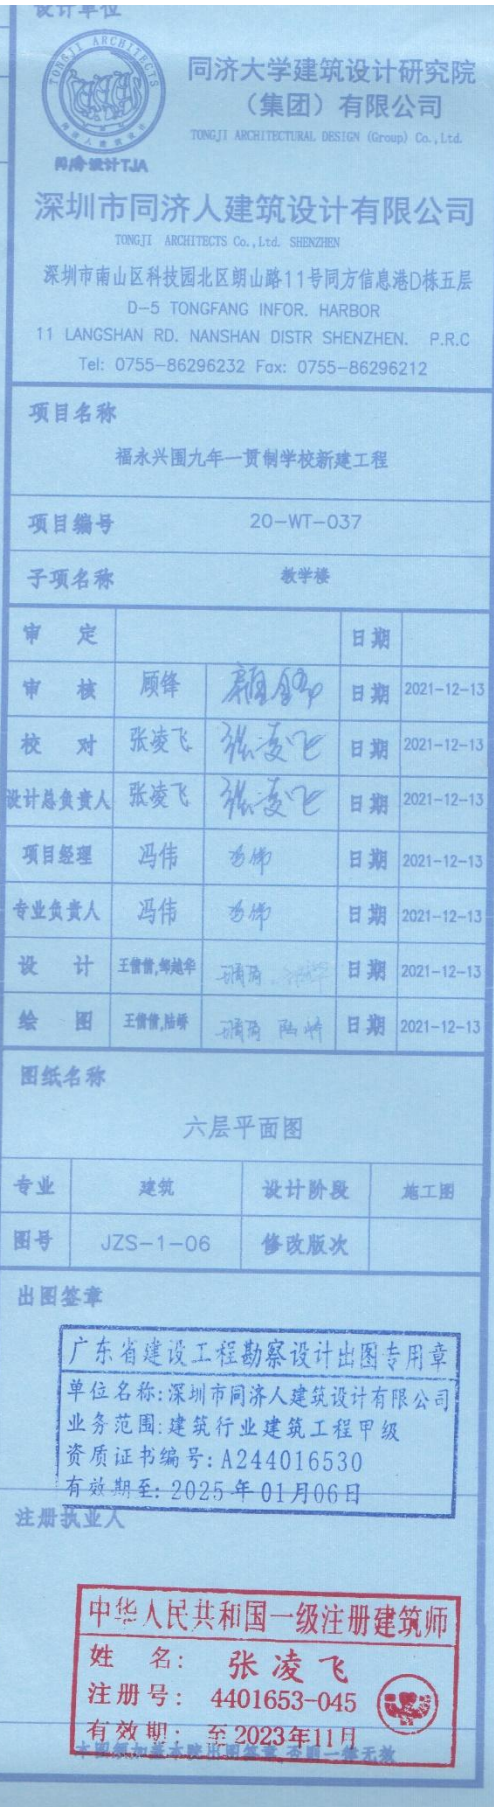 设计单位
TONGJI ARCHITECTS
同济人建筑设计
同济设计TJA
同济大学建筑设计研究院
（集团）有限公司
TONGJI ARCHITECTURAL DESIGN (Group) Co.,Ltd.
深圳市同济人建筑设计有限公司
TONGJI ARCHITECTS Co.,Ltd. SHENZHEN
深圳市南山区科技园北区朗山路11号同方信息港D栋五层
D-5 TONGFANG INFOR. HARBOR
11 LANGSHAN RD. NANSHAN DISTR SHENZHEN. P.R.C
Tel: 0755-86296232 Fax: 0755-86296212
项目名称
福永兴围九年一贯制学校新建工程
项目编号 20-WT-037
子项名称 教学楼
审 定 日期
审 核 顾锋 顾锋 日期 2021-12-13
校 对 张凌飞 张凌飞 日期 2021-12-13
设计总负责人 张凌飞 张凌飞 日期 2021-12-13
项目经理 冯伟 冯伟 日期 2021-12-13
专业负责人 冯伟 冯伟 日期 2021-12-13
设 计 王倩倩,邹越华 日期 2021-12-13
绘 图 王倩倩,陆峤 日期 2021-12-13
图纸名称
六层平面图
专业 建筑 设计阶段 施工图
图号 JZS-1-06 修改版次
出图签章
广东省建设工程勘察设计出图专用章
单位名称:深圳市同济人建筑设计有限公司
业务范围:建筑行业建筑工程甲级
资质证书编号:A244016530
有效期至:2025年01月06日
注册执业人
中华人民共和国一级注册建筑师
姓 名: 张凌飞
注册号: 4401653-045
有效期: 至2023年11月
本图须加盖本院出图签章,否则一律无效